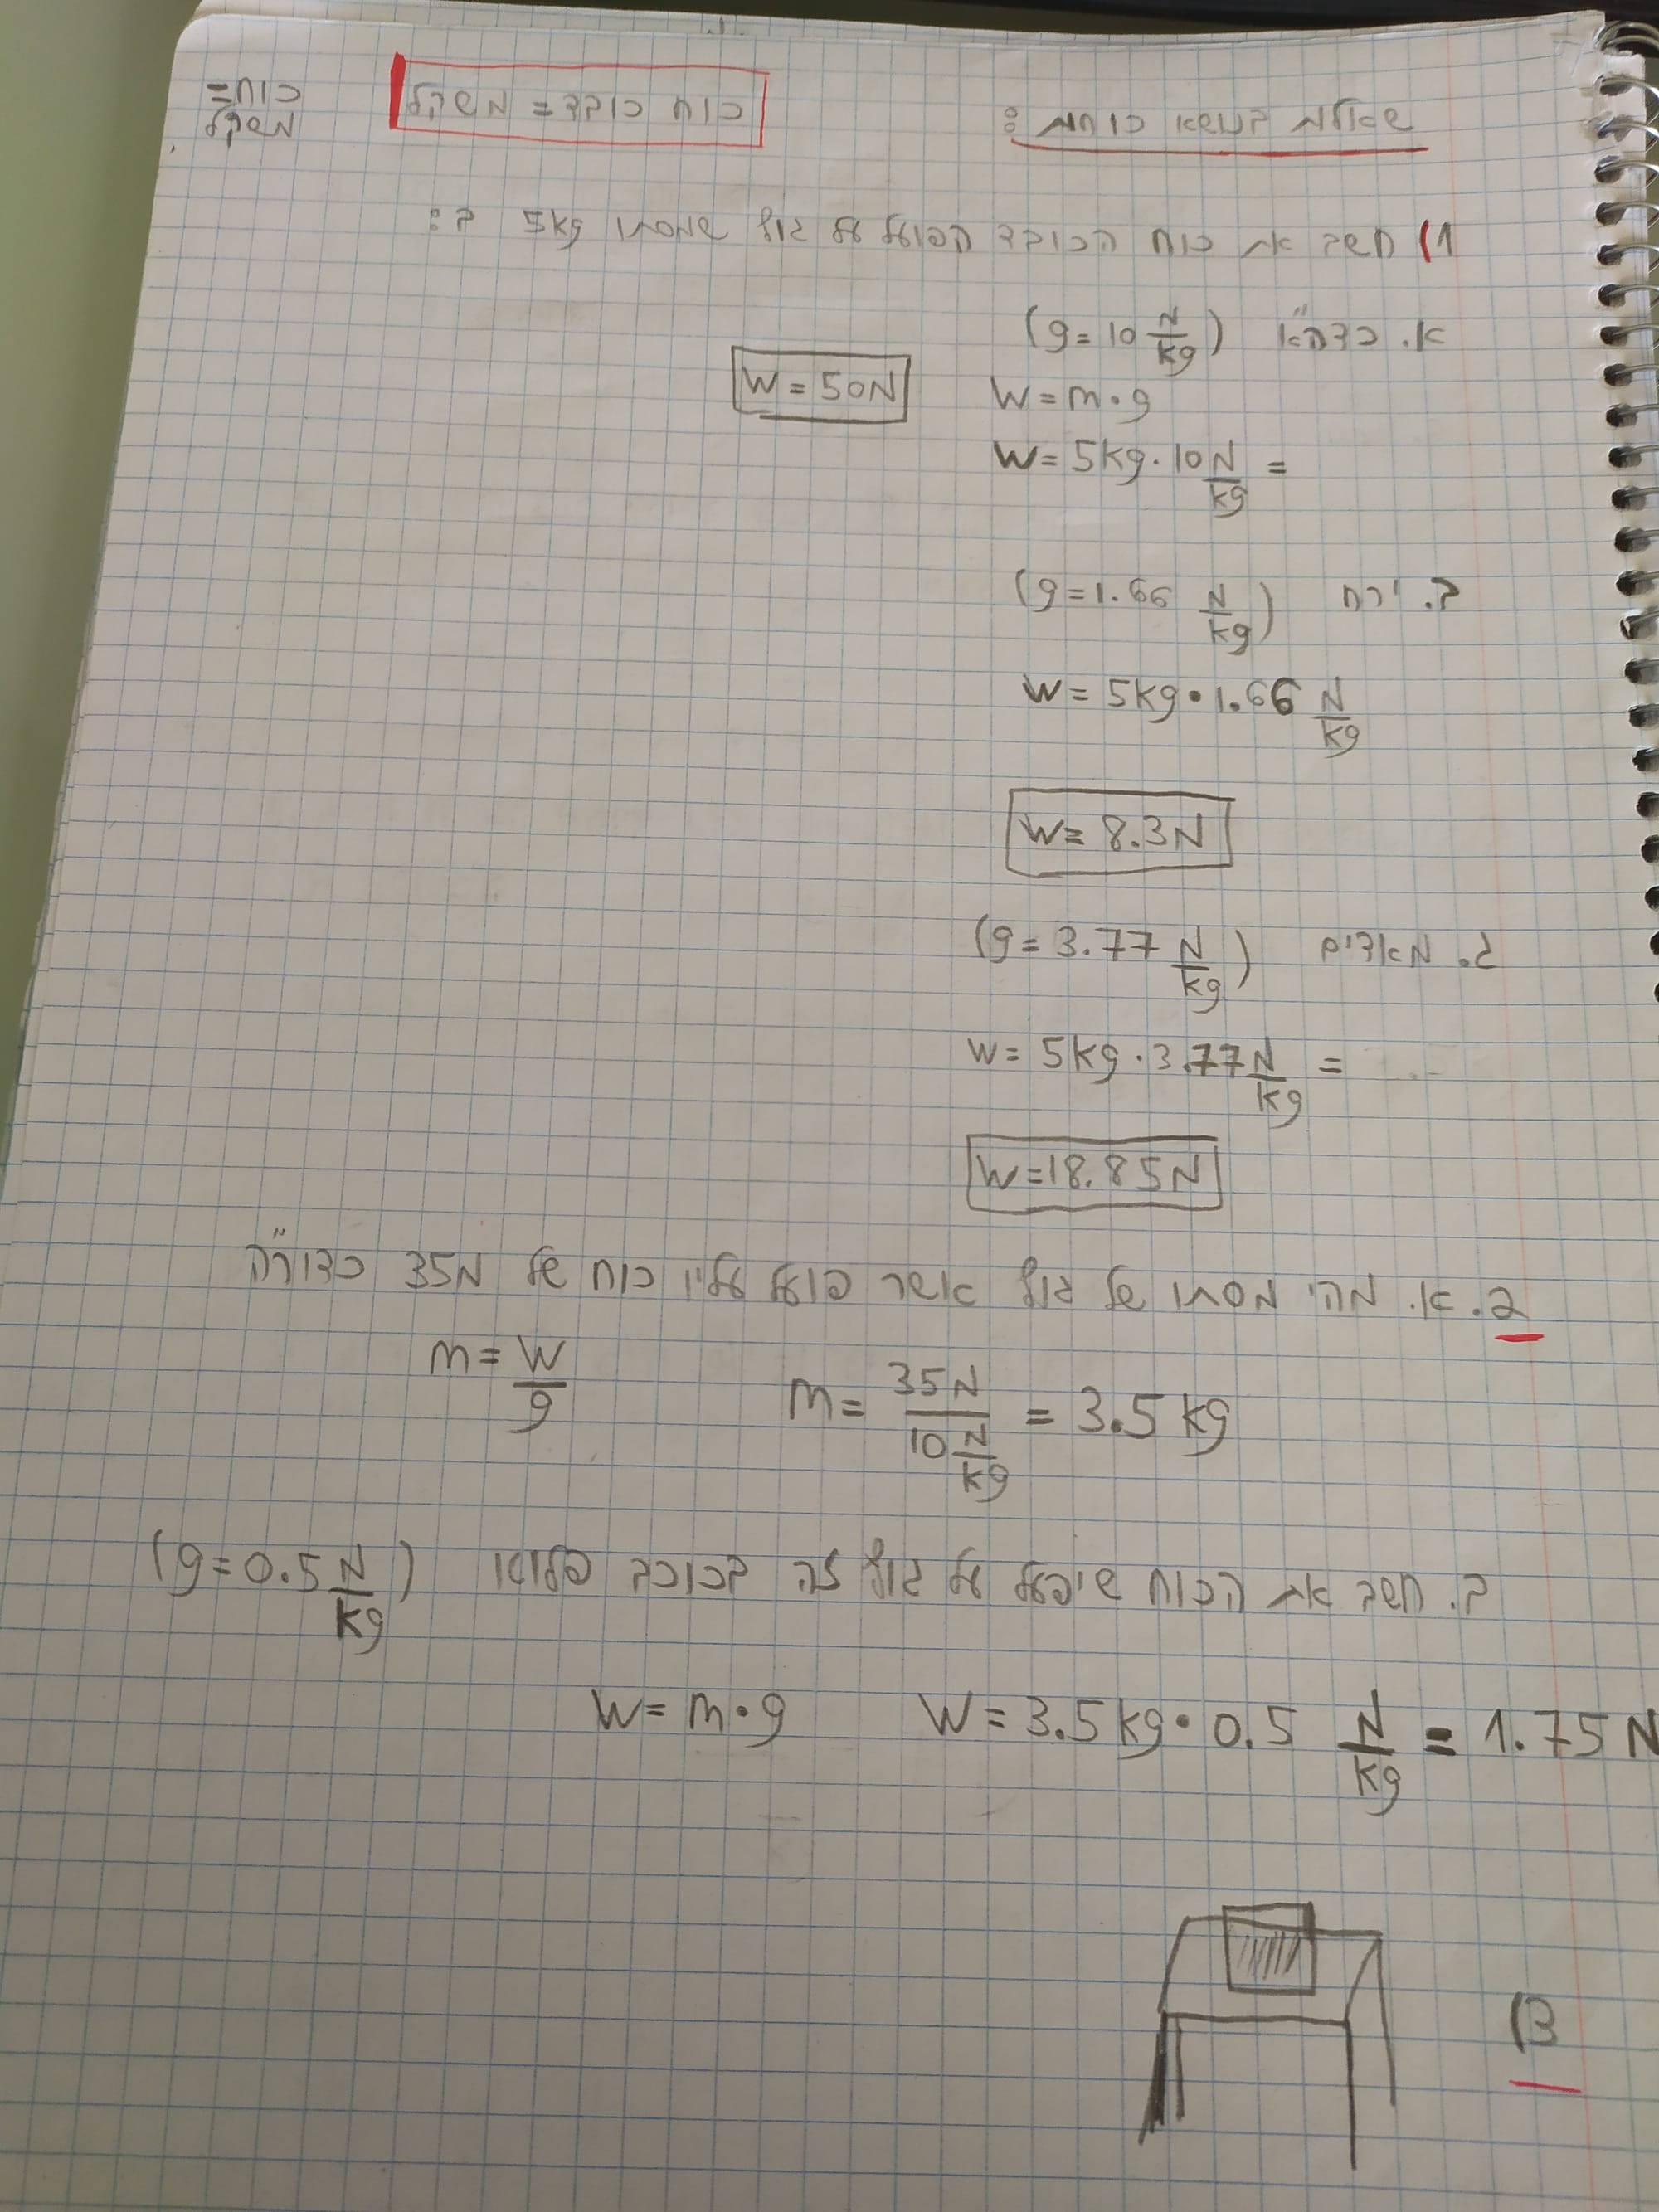 שאלות בנושא כוחות:
כוח כובד = משקל
כוח =
משקל
1) חשב את כוח הכובד הפועל על גוף שמסתו 5kg ב:
א. כדה"א (g = 10 N/kg)
W = m·g
W = 50N
W = 5kg · 10 N/kg =
ב. ירח (g = 1.66 N/kg)
W = 5kg · 1.66 N/kg
W = 8.3N
ג. מאדים (g = 3.77 N/kg)
W = 5kg · 3.77 N/kg =
W = 18.85N
2. א. מהי מסתו של גוף אשר פועל עליו כוח של 35N
m = W/g
m = 35N / 10 N/kg = 3.5 kg
ב. חשב את הכוח שיפעל על גוף זה בכוכב פלוטו (g = 0.5 N/kg)
W = m·g W = 3.5 kg · 0.5 N/kg = 1.75 N
3)